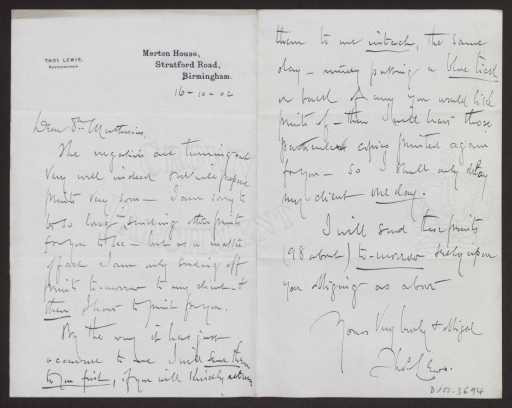 THOS. LEWIS,
Merton House,
Stratford Road,
Birmingham.
16-10-02
Dear Mr
The negatives are turning out
very well indeed
prints very soon - I am sorry to
be so long sending other prints
for you to see - but as a matter
of fact I am only sending off
prints tomorrow to my client - &
then I have to print for you.
By the way it has just
occurred to me I will send them
to you first, if you will kindly return
them to me intact, the same
day - merely putting a blue tick
on back of any you would like
prints of - then I will have those
particular copies printed again
for you - so I shall only delay
my client one day.
I will send these prints
(98 about) to-morrow
you obliging as above
Yours very truly & obliged
Thos Lewis.